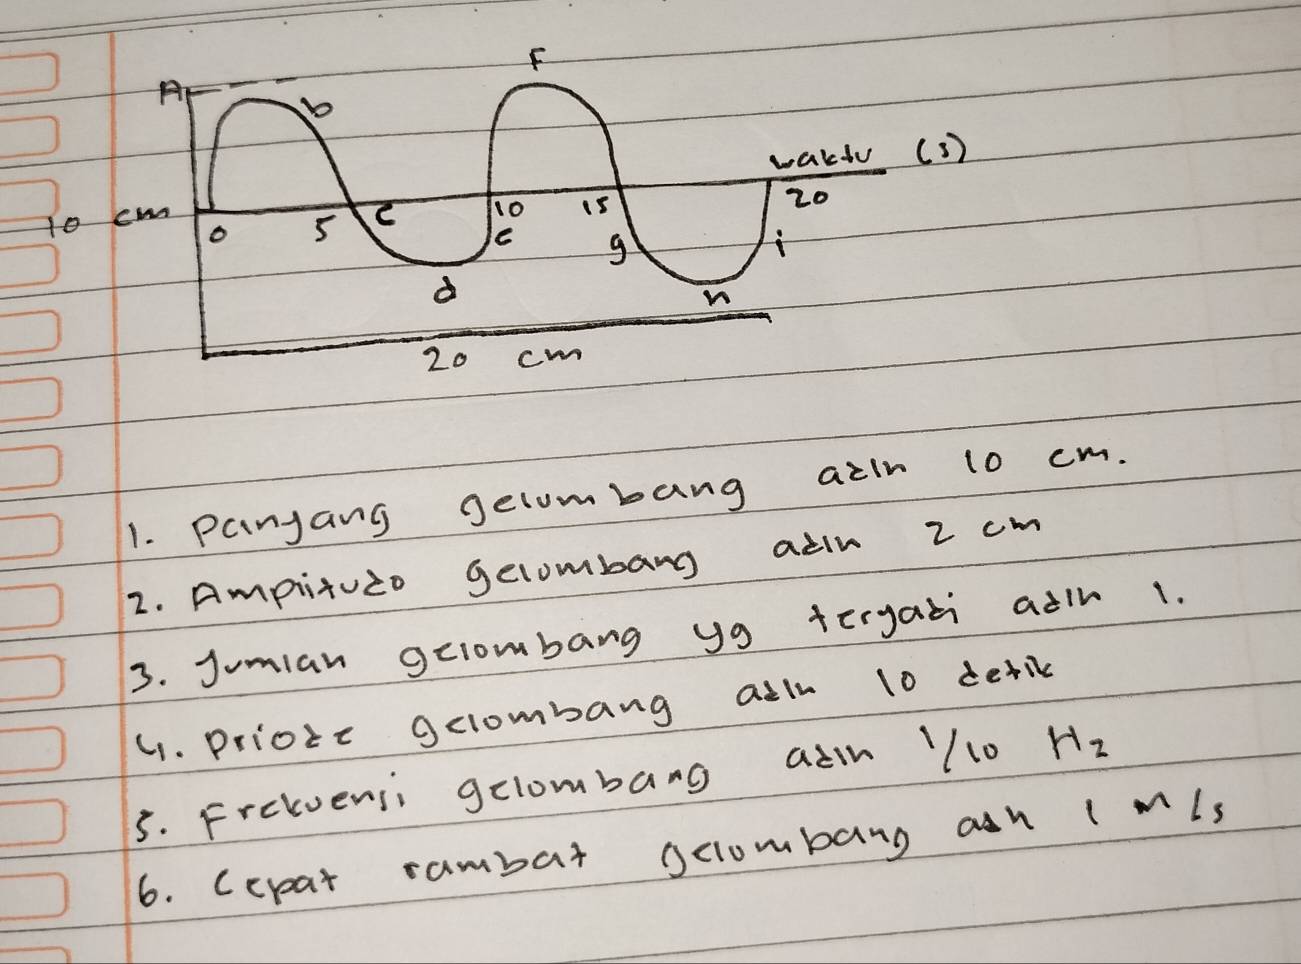 F
A
b
waktu (s)
10 cm
0 5 c 10 15 20
c g i
d n
20 cm
1. Panyang gelumbang adln 10 cm.
2. Ampiitudo gelombang adln 2 cm
3. Jumlah gelombang yg teryadi adlh 1.
4. Priode gelombang adln 10 detik
5. Frekuensi gelombang adln 1/10 Hz
6. Cepat rambat gelombang adh 1 m/s